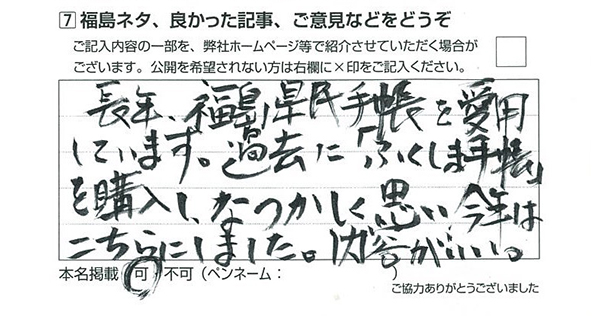 7 福島ネタ、良かった記事、ご意見などをどうぞ
ご記入内容の一部を、弊社ホームページ等で紹介させていただく場合が
ございます。公開を希望されない方は右欄に×印をご記入ください。
長年、福島県民手帳を愛用
しています。過去に「ふくしま手帳」
を購入し、なつかしく思い、今年は
こちらにしました。内容がいい。
本名掲載 可・不可(ペンネーム: )
ご協力ありがとうございました